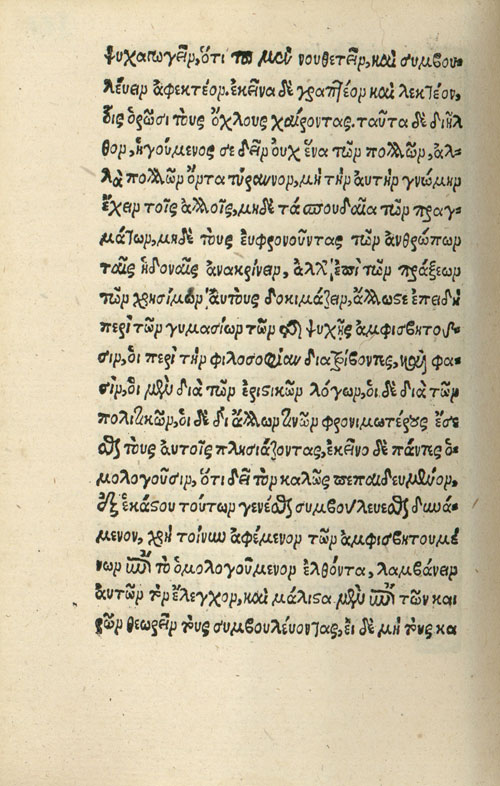 ψυχαγωγεῖν, ὅτι τὸ μὲν νουθετεῖν, καὶ συμβου-
λέυειν ἀφεκτέον. ἐκεῖνα δὲ γραπτέον καὶ λεκτέον,
ὃις ὁρῶσι τοὺς ὄχλους χαίροντας. ταῦτα δὲ διῆλ
θον, ἡγούμενος σε δεῖν ουχ ἕνα τῶν πολλῶν, ἀλ-
λὰ πολλῶν ὄντα τύραννον, μὴ τὴν ἀυτὴν γνώμην
ἔχειν τοῖς ἄλλοις, μηδὲ τά σπουδαῖα τῶν πραγ-
μάτων, μηδὲ τοὺς ἐυφρονοῦντας τῶν ἀνθρώπων
ταῖς ἡδοναῖς ἀνακρίνειν, ἀλλ' ἐπὶ τῶν πράξεων
τῶν χρησίμων ἀυτοὺς δοκιμάζειν, ἄλλωστε ἐπειδὴ
περὶ τῶν γυμασίων τῶν τῆς ψυχῆς ἀμφισβητοῦ-
σιν, ὁι περὶ τὴν φιλοσοφίαν διατρίβοντες, καὶ φα-
σὶν, ὁι μὲν διὰ τῶν ἐριστικῶν λόγων, ὁι δὲ διὰ τῶν
πολιτικῶν, ὁι δὲ δι ἄλλων τινῶν φρονιμωτέρους ἔσε
σθαι τοὺς αυτοῖς πλησιάζοντας, ἐκεῖνο δὲ πάντες ὁ-
μολογοῦσιν, ὅτι δεῖ τὸν καλῶς πεπαιδευμένον,
ἐξ ἑκάστου τούτων γενέσθαι συμβουλευεσθαι δυνά-
μενον, χρὴ τοίνυν ἀφέμενον τῶν ἀμφισβητουμέ
νων ἐπὶ τὸ ὁμολογούμενον ἐλθόντα, λαμβάνειν
ἀυτῶν τὸν ἔλεγχον, καὶ μάλιστα μὲν ἐπὶ τῶν και
ρῶν θεωρεῖν τοὺς συμβουλέυοντας, ἐι δὲ μὴ τοὺς κα